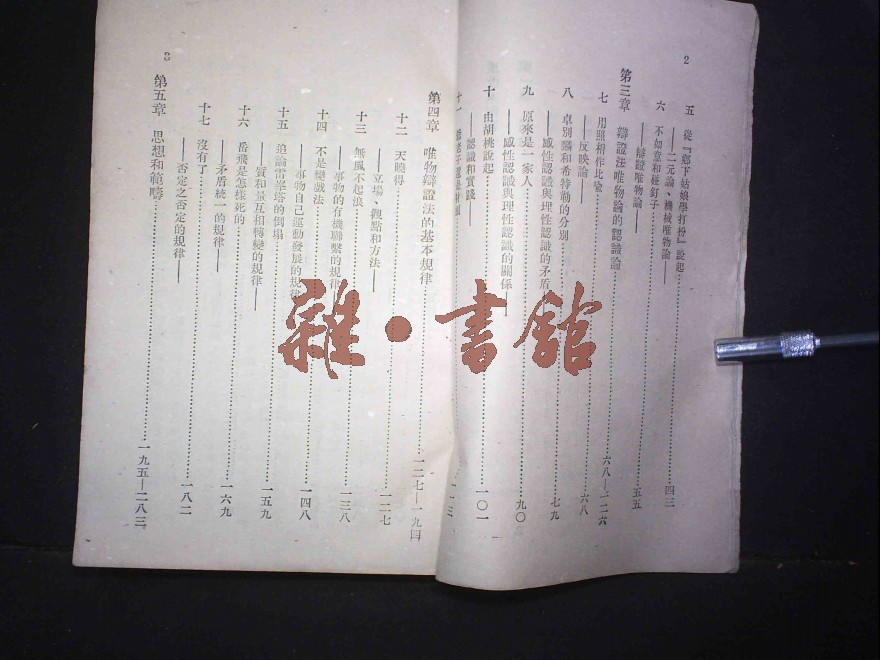 2
五 從『鄉下姑娘學打扮』說起……四三
——二元論、機械唯物論——
六 不如意和碰釘子……五五
——辯證唯物論——
第三章 辯證法唯物論的認識論……六八—一二六
七 用照相作比喻……六八
——反映論——
八 卓別麟和希特勒的分別……七九
——感性認識與理性認識的矛盾
九 原來是一家人……九〇
——感性認識與理性認識的關係——
十 由胡桃說起……一〇一
——認識和實踐——
十一
3
第四章 唯物辯證法的基本規律……一二七—一九四
十二 天曉得……一二七
——立場、觀點和方法——
十三 無風不起浪……一三八
——事物的有機聯繫的規律
十四 不是變戲法……一四八
——事物自己運動發展的規律
十五 追論雷峯塔的倒塌……一五九
——質和量互相轉變的規律——
十六 岳飛是怎樣死的……一六九
——矛盾統一的規律——
十七 沒有了……一八二
——否定之否定的規律——
第五章 思想和範疇……一九五—二八三
雜·書館